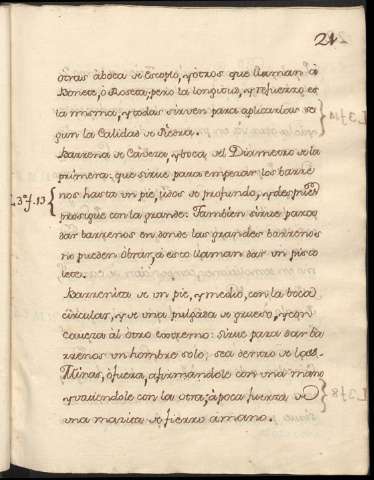 21.
òtras àbota de Escoplo, yòtros que llaman à
Bonete, ò Roseta; pero la longitud, y refuerzo es
la misma, y todas sirven para aplicarlas se
gun la Calidad de Piedra.
L.3ª f.14
Barrena de Cabeza, y boca del Diametro de la
primera: que sirve para empezar los barre
nos hasta un pie, ù dos de profundo, y despues
L.3ª f.13
prosigue con la grande: Tambien sirve para
dar barrenos en donde los grandes barrenos
no pueden òbrar, à esto llaman dar un pisto
lete.
Barrenita de un pie, y medio, con la boca
circular, y de una pulgada de grueso, y con
caveza al òtro extremo: Sirve para dar ba
rrenos un hombre solo; sea dentro de las
Minas, òfuera, afirmandole con una mano
y dandole con la otra; à poca fuerza de
L.3 f.8
una mazita de fierro àmano.